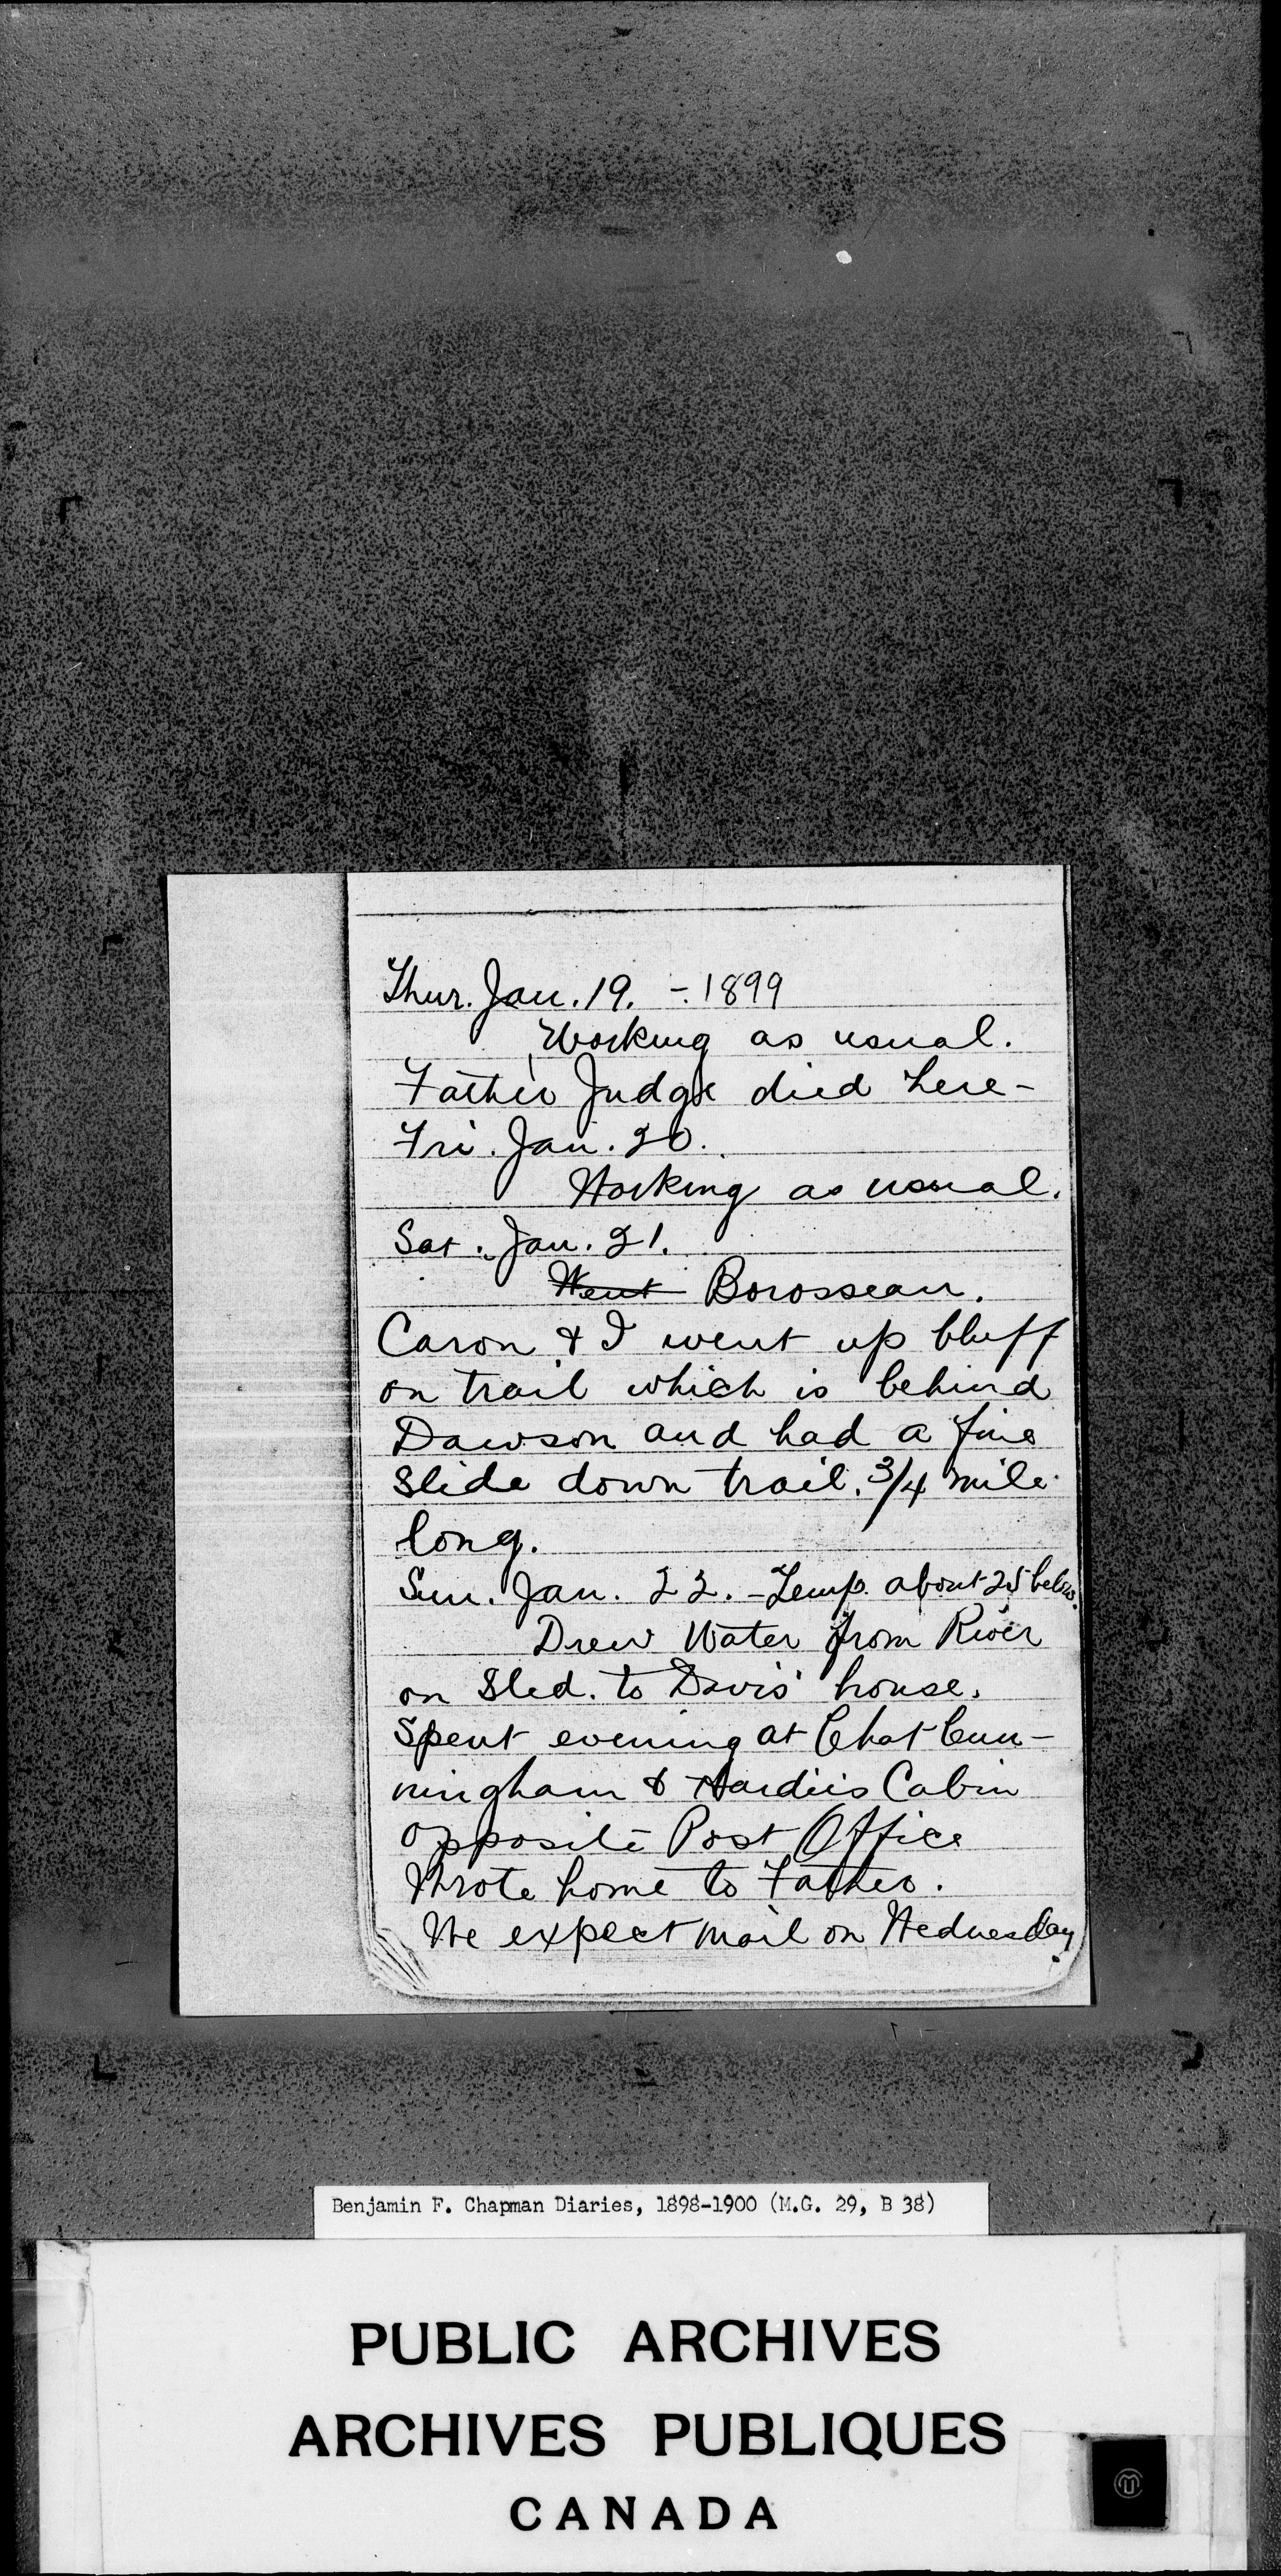 Thur. Jan. 19. - 1899
Working as usual.
Father Judge died here -
Fri. Jan. 20.
Working as usual.
Sat. Jan. 21.
Went Borosseau.
Caron & I went up bluff
on trail which is behind
Dawson and had a fine
slide down trail. 3/4 mile
long.
Sun. Jan. 22. - Temp. about 25 below.
Drew Water from River
on Sled. to Davis' house.
Spent evening at Chat Cun-
ningham & Hardies Cabin
opposite Post Office
Wrote home to Father.
We expect mail on Wednesday.
Benjamin F. Chapman Diaries, 1898-1900 (M.G. 29, B 38)
PUBLIC ARCHIVES
ARCHIVES PUBLIQUES
CANADA